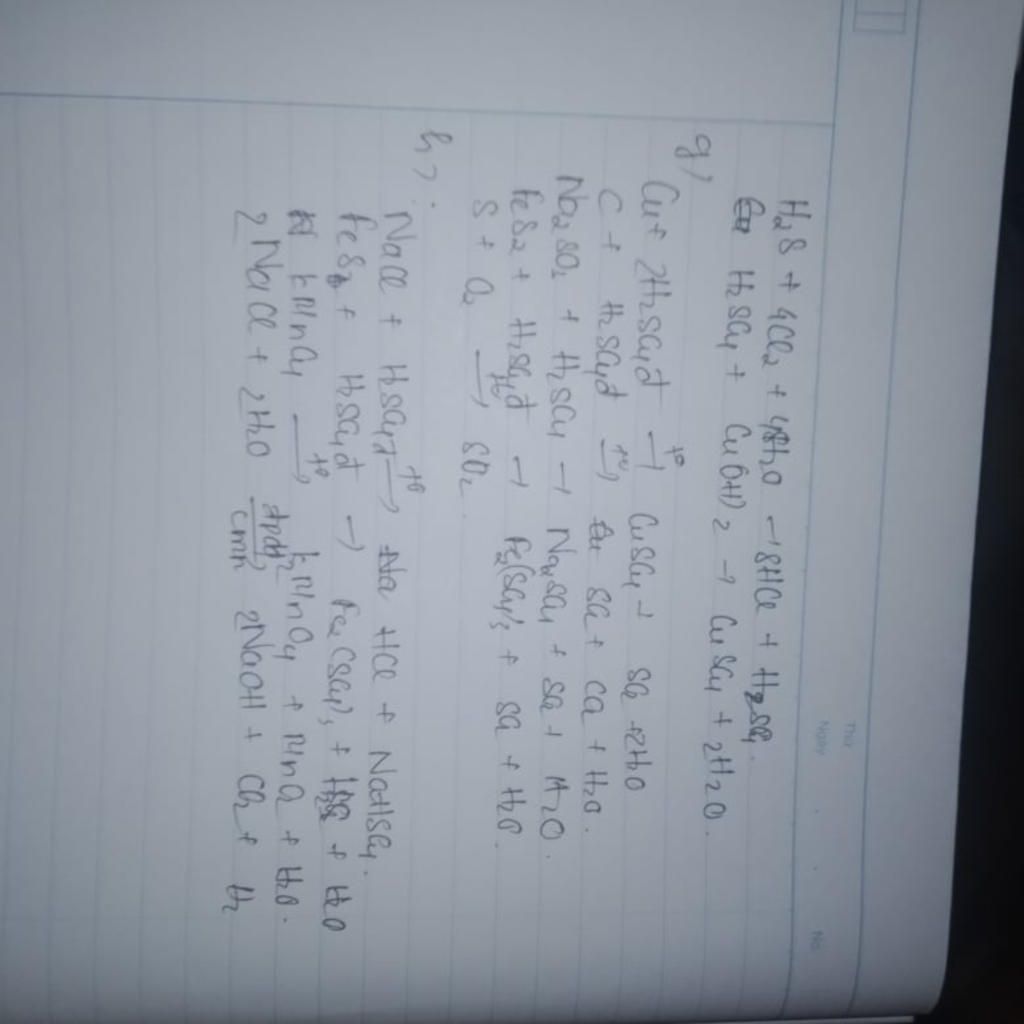 Thứ
Ngày . . No
H2S + 4Cl2 + 4H2O → 8HCl + H2SO4.
H2SO4 + Cu(OH)2 → CuSO4 + 2H2O.
g)
Cu + 2H2SO4đ →t° CuSO4 + SO2 + 2H2O
C + H2SO4đ →t° SO2 + CO2 + H2O.
Na2SO3 + H2SO4 → Na2SO4 + SO2 + H2O.
FeS2 + H2SO4đ → Fe2(SO4)3 + SO2 + H2O.
S + O2 →t° SO2.
h).
NaCl + H2SO4đ →t° HCl + NaHSO4.
FeS2 + H2SO4đ → Fe2(SO4)3 + + H2O
KMnO4 →t° K2MnO4 + MnO2 + H2O.
2NaCl + 2H2O →đpdd cmn 2NaOH + Cl2 + H2